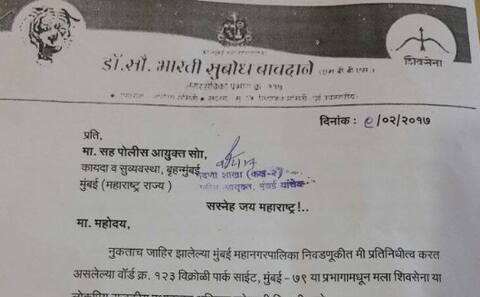 डॉ. सौ. भारती सुबोध बावदाने (एम.बी.बी.एस.)
नगरसेविका प्रभाग क्र.
शिवसेना
दिनांक : /०२/२०१७
प्रति,
मा. सह पोलीस आयुक्त सो,
कायदा व सुव्यवस्था, बृहन्मुंबई
मुंबई (महाराष्ट्र राज्य)
शाखा (कक्ष-२)
आयुक्त, मुंबई यांचेक
सस्नेह जय महाराष्ट्र!..
मा. महोदय,
नुकताच जाहिर झालेल्या मुंबई महानगरपालिका निवडणूकीत मी प्रतिनिधीत्व करत
असलेल्या वॉर्ड क्र. १२३ विक्रोळी पार्क साईट, मुंबई - ७९ या प्रभागामधून मला शिवसेना या